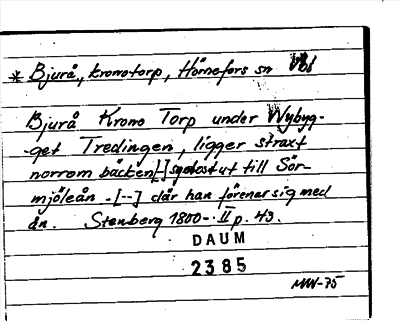 * Bjurå, kronotorp, Hörnefors sn Vb
Bjurå Krono Torp under Nybyg-
get Tredingen, ligger straxt
norrom bäcken [-] sydostut till Sör-
mjöleån -[--] där han förenar sig med
ån. Stenberg 1800-. II p. 43.
DAUM
2385
MW-75